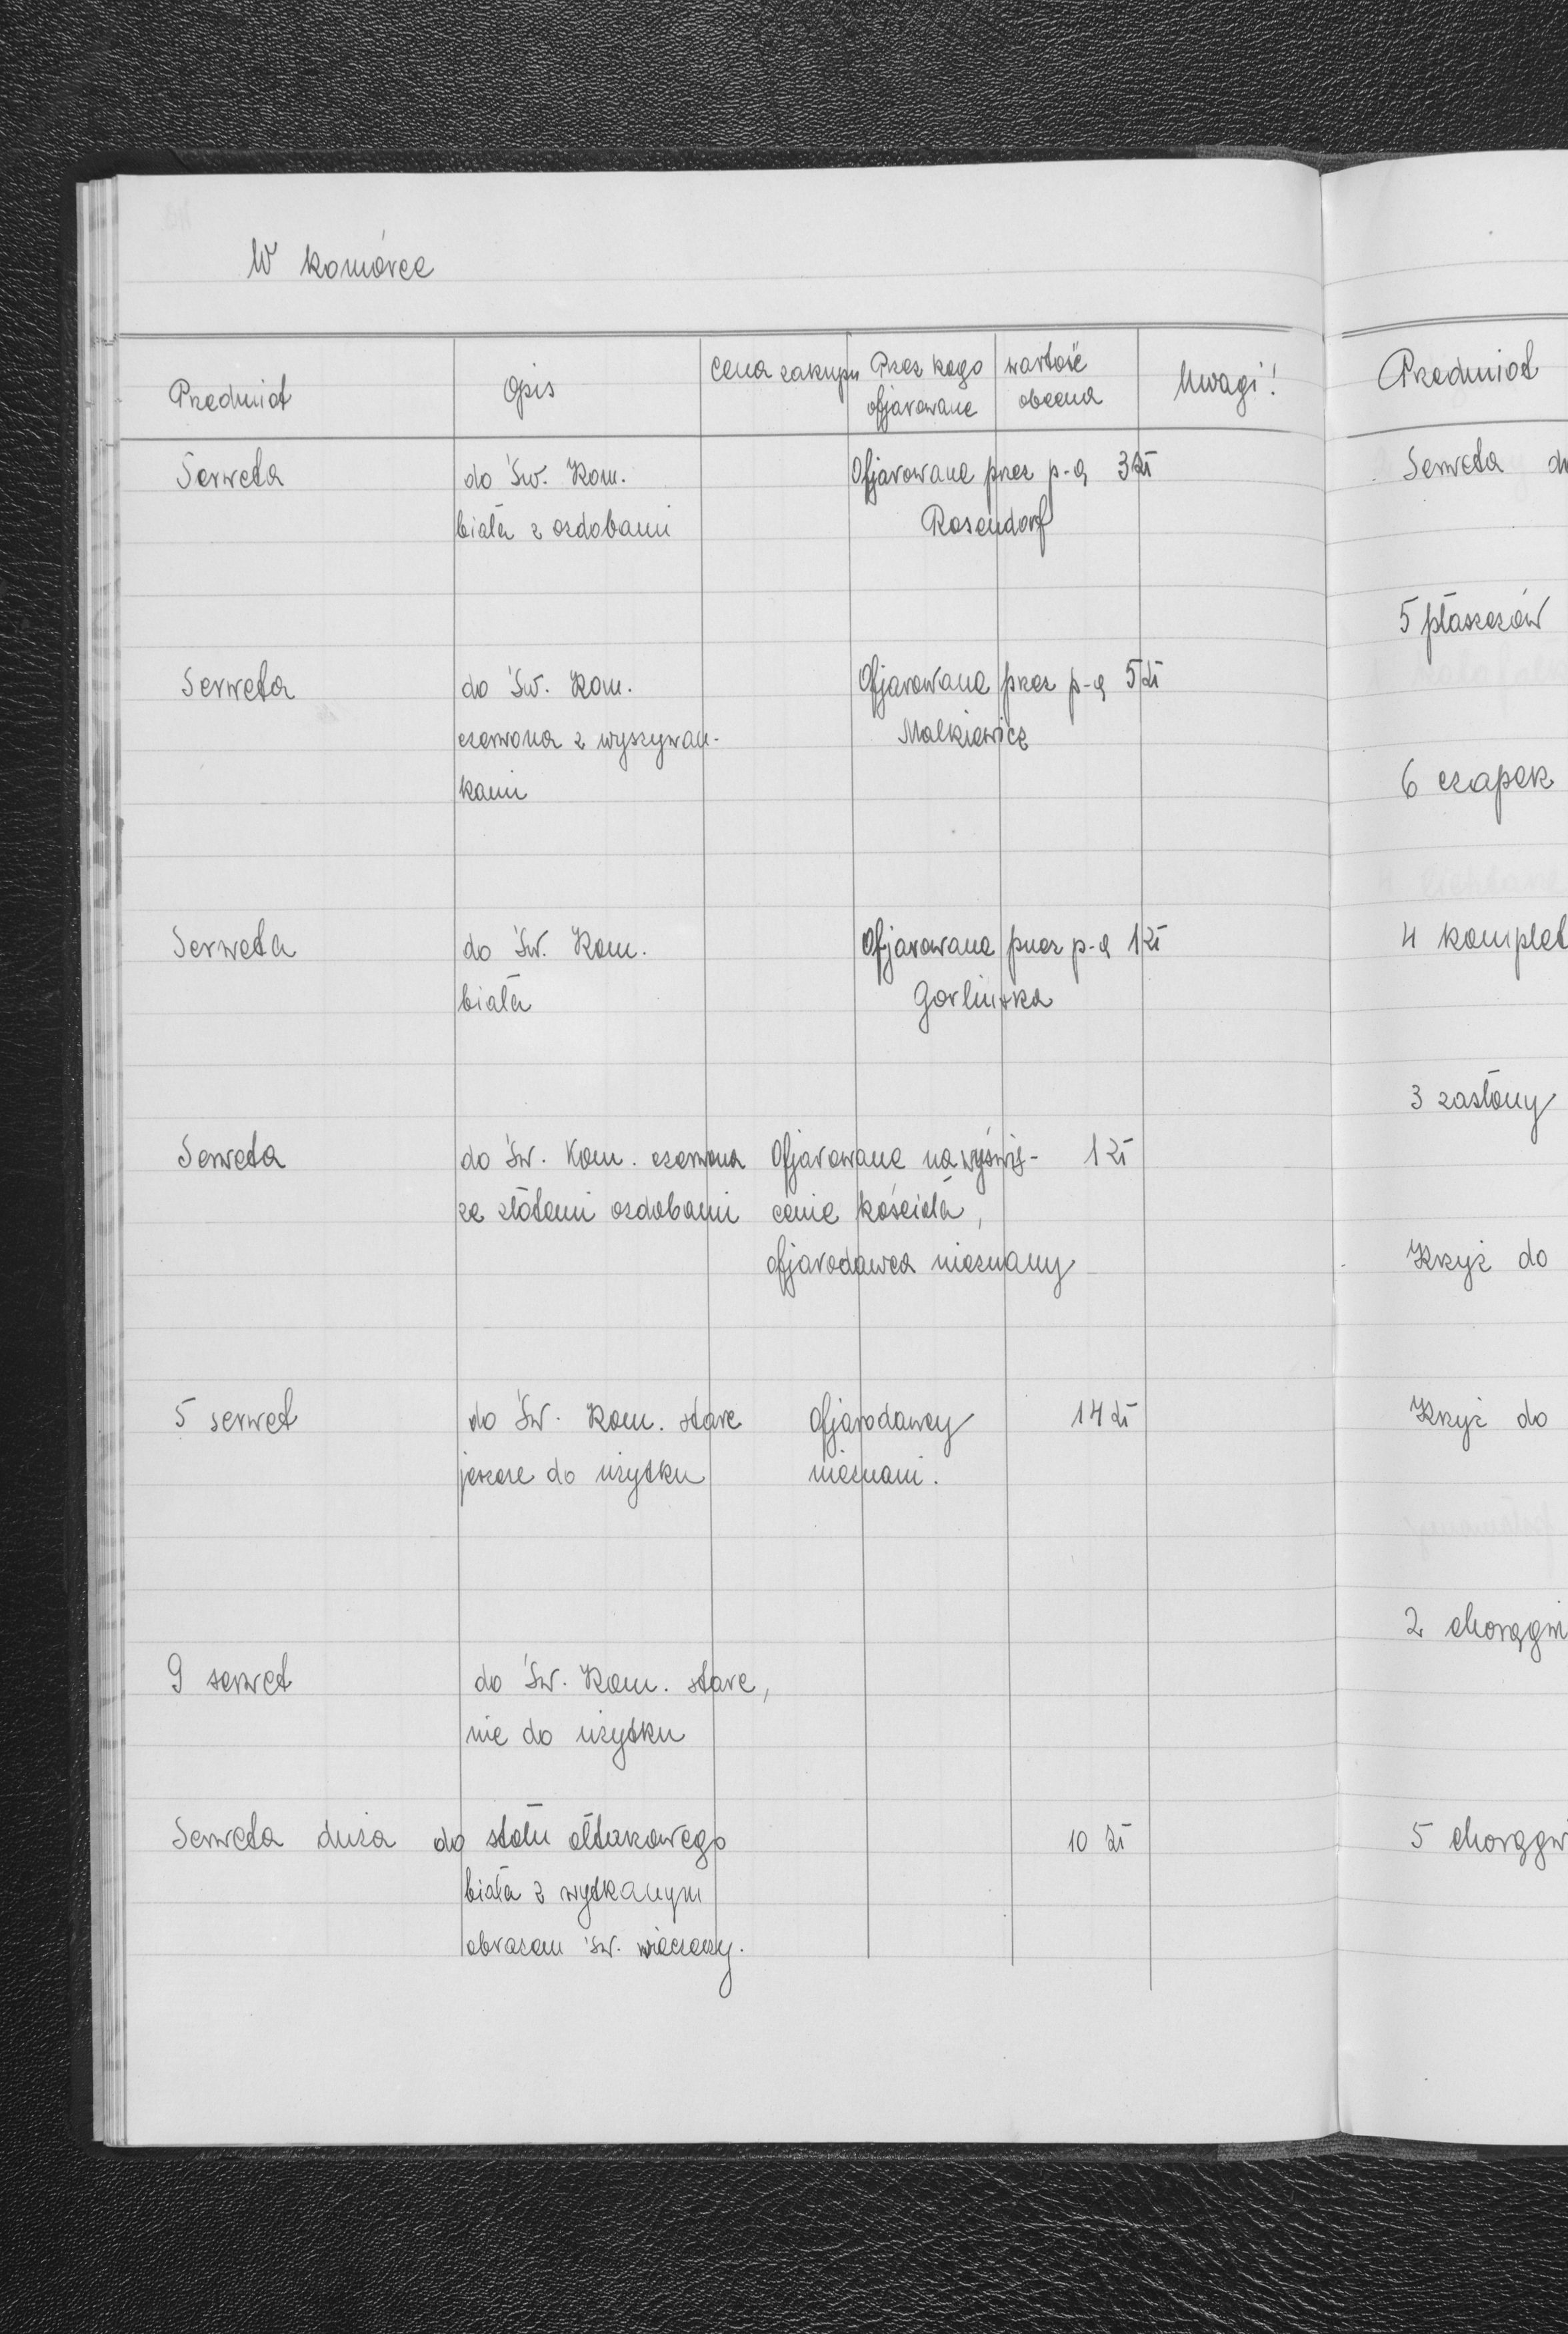 W komórce
Przedmiot Opis Cena zakupu Przez kogo ofjarowane wartość obecna Uwagi!
Serweta do Św. Kom. Ofjarowane przez p-ą 3 zł
biała z ozdobami Rosendorf
Serweta do Św. Kom. Ofjarowana przez p-ą 5 zł
czerwona z wyszywan- Malkiewicz
kami
Serweta do Św. Kom. Ofjarowana przez p-ą 1 zł
biała Gorlinska
Serweta do Św. Kom. czerwona Ofjarowane na wyświę- 1 zł
ze złotemi ozdobami cenie kościoła,
ofjarodawca nieznany
5 serwet do Św. Kom. stare Ofjarodawcy 14 zł
jeszcze do użytku nieznani.
9 serwet do Św. Kom. stare,
nie do użytku
Serweta duża do stołu ołtarzowego 10 zł
biała z wytkanym
obrazem św. wieczerzy.
Przedmiot
Serweta
5 płaszczów
6 czapek
4 komplet
3 zasłony
Krzyż do
Krzyż do
2 chorągwi
5 chorągwi